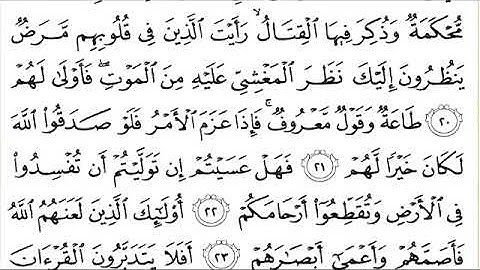 مُّحْكَمَةٌ وَذُكِرَ فِيهَا ٱلْقِتَالُ ۙ رَأَيْتَ ٱلَّذِينَ فِى قُلُوبِهِم مَّرَضٌ
يَنظُرُونَ إِلَيْكَ نَظَرَ ٱلْمَغْشِىِّ عَلَيْهِ مِنَ ٱلْمَوْتِ ۖ فَأَوْلَىٰ لَهُمْ
٢٠ طَاعَةٌ وَقَوْلٌ مَّعْرُوفٌ ۚ فَإِذَا عَزَمَ ٱلْأَمْرُ فَلَوْ صَدَقُوا۟ ٱللَّهَ
لَكَانَ خَيْرًا لَّهُمْ ٢١ فَهَلْ عَسَيْتُمْ إِن تَوَلَّيْتُمْ أَن تُفْسِدُوا۟
فِى ٱلْأَرْضِ وَتُقَطِّعُوٓا۟ أَرْحَامَكُمْ ٢٢ أُو۟لَٰٓئِكَ ٱلَّذِينَ لَعَنَهُمُ ٱللَّهُ
فَأَصَمَّهُمْ وَأَعْمَىٰٓ أَبْصَٰرَهُمْ ٢٣ أَفَلَا يَتَدَبَّرُونَ ٱلْقُرْءَانَ